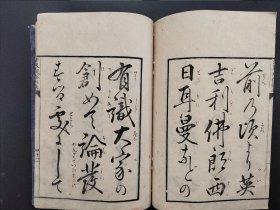 前の頃より英
吉利佛郎西
日耳曼などの
有識大家の
創めて論發
する處にして